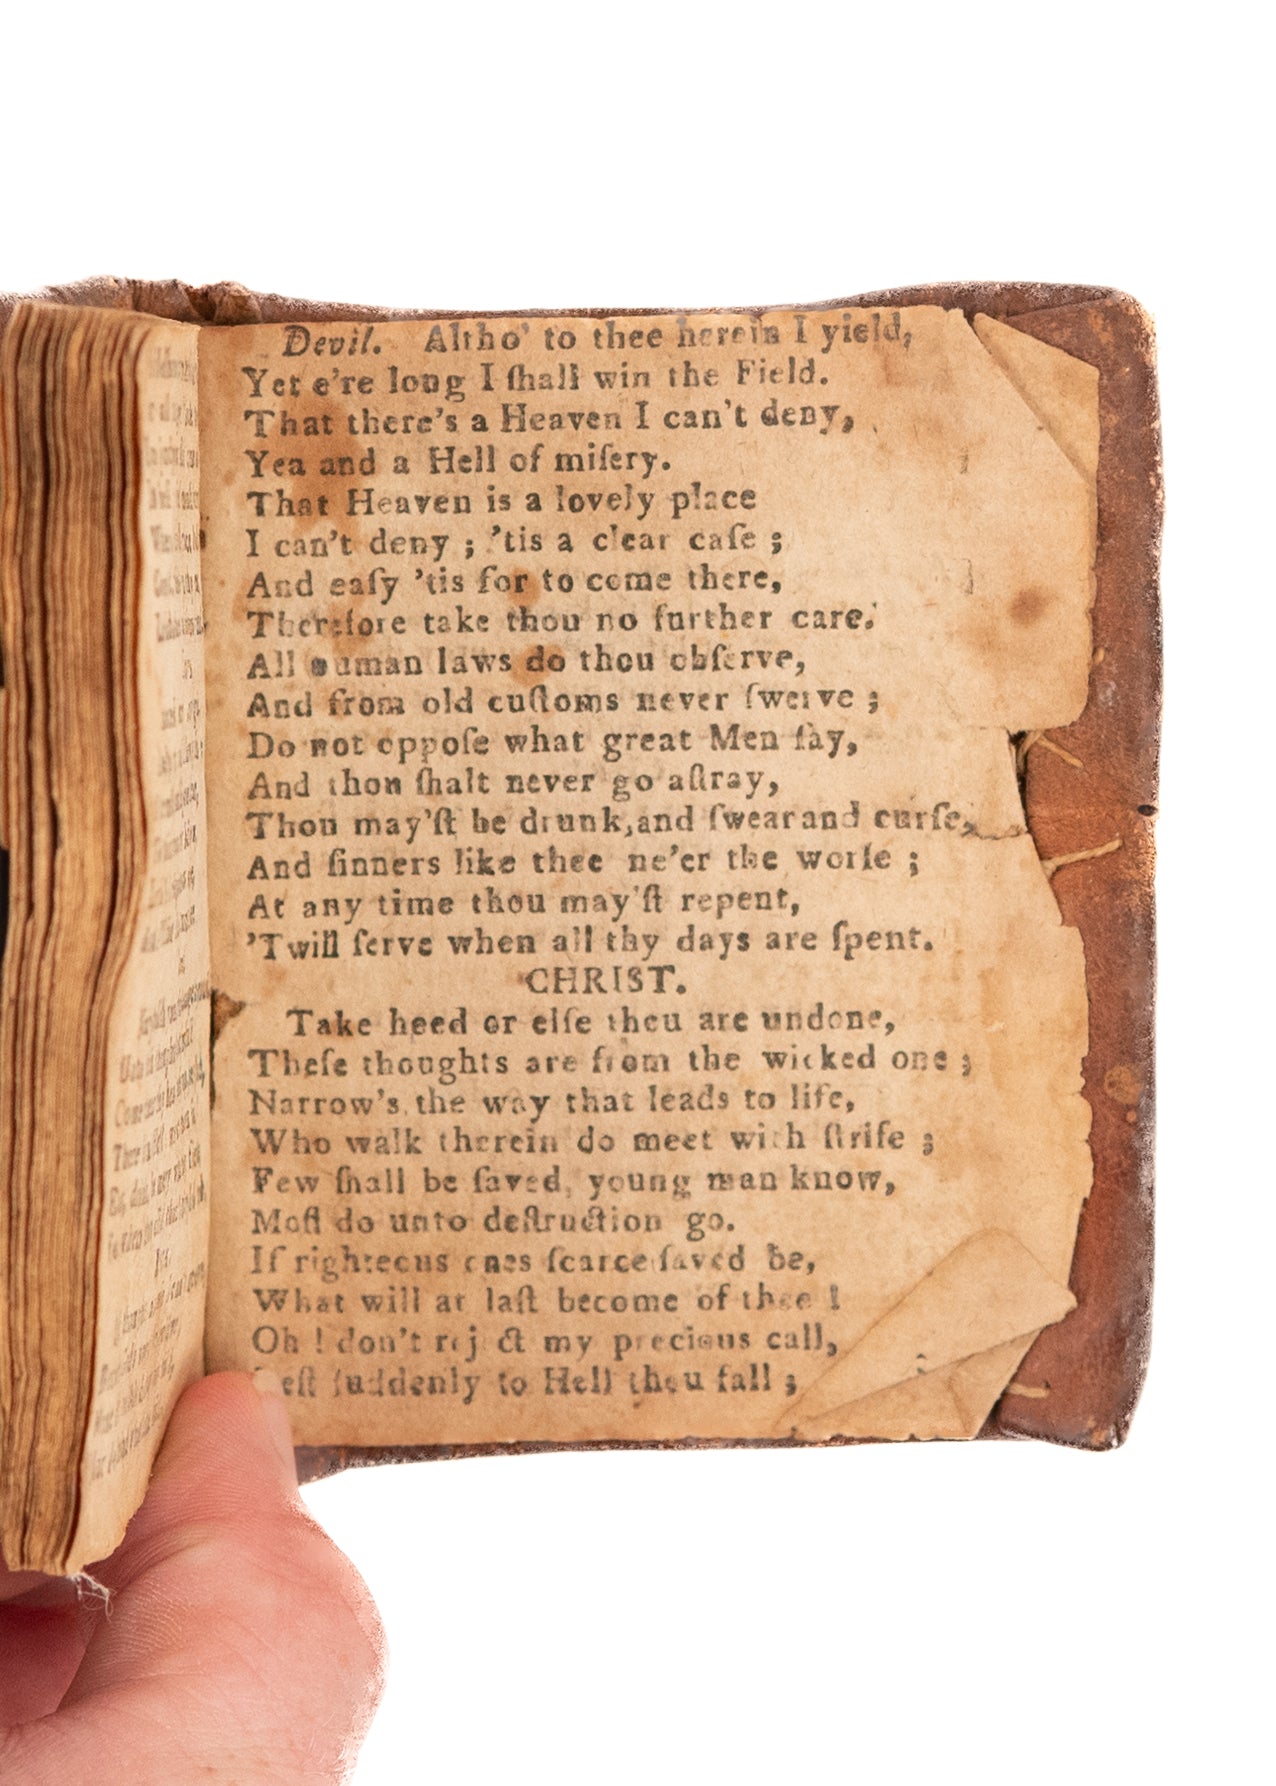 Devil. Altho' to thee herein I yield,
Yet e're long I ſhall win the Field.
That there's a Heaven I can't deny,
Yea and a Hell of miſery.
That Heaven is a lovely place
I can't deny ; 'tis a clear caſe ;
And eaſy 'tis for to come there,
Therefore take thou no further care.
All human laws do thou obſerve,
And from old cuſtoms never ſwerve ;
Do not oppoſe what great Men ſay,
And thou ſhalt never go aſtray,
Thou may'ſt be drunk, and ſwear and curſe,
And ſinners like thee ne'er the worſe ;
At any time thou may'ſt repent,
'Twill ſerve when all thy days are ſpent.
CHRIST.
Take heed or elſe thou are undone,
Theſe thoughts are from the wicked one ;
Narrow's the way that leads to life,
Who walk therein do meet with ſtrife ;
Few ſhall be ſaved, young man know,
Moſt do unto deſtruction go.
If righteous ones ſcarce ſaved be,
What will at laſt become of thee !
Oh ! don't reject my precious call,
Leſt ſuddenly to Hell thou fall ;